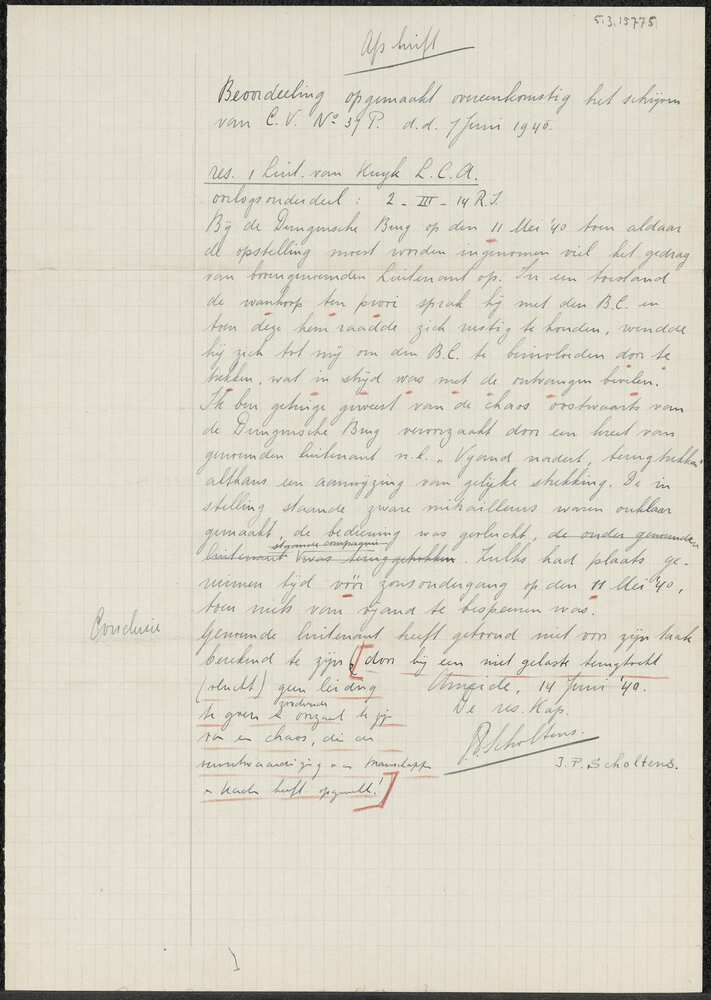 5.3.15775
Afschrift
Beoordeeling opgemaakt overeenkomstig het schrijven
van C.V. No 37 P. d.d. 7 Juni 1940.
res. 1 Luit. van Kuyk L.C.A.
oorlogsonderdeel : 2 - III - 14 R.I.
Bij de Dungensche Brug op den 11 Mei '40 toen aldaar
de opstelling moest worden ingenomen viel het gedrag
van bovengenoemden Luitenant op. In een toestand
de wanhoop ten prooi sprak hij met den B.C. en
toen deze hem raadde zich rustig te houden, wendde
hij zich tot mij om den B.C. te beinvloeden door te
trekken, wat in strijd was met de ontvangen bevelen.
Ik ben getuige geweest van de chaos oostwaarts van
de Dungensche Brug veroorzaakt door een kreet van
genoemden luitenant n.l. "Vijand nadert, terugtrekken"
althans een aanwijzing van gelijke strekking. De in
stelling staande zware mitrailleurs waren onklaar
gemaakt, de bediening was gevlucht, de onder genoemden
luitenant staande compagnie was teruggetrokken. Zulks had plaats ge-
nomen tijd vóór zonsondergang op den 11 Mei '40,
toen niets van vijand te bespeuren was.
Conclusie
Genoemde luitenant heeft getoond niet voor zijn taak
berekend te zijn [door bij een niet gelaste terugtocht
(vlucht) geen leiding
Ameide, 14 Juni '40.
te geven & oorzaak te zijn
De res. Kap.
van een chaos, die de
J.P. Scholtens.
verontwaardiging van manschappen
J. P. Scholtens.
& kader heeft opgewekt!]